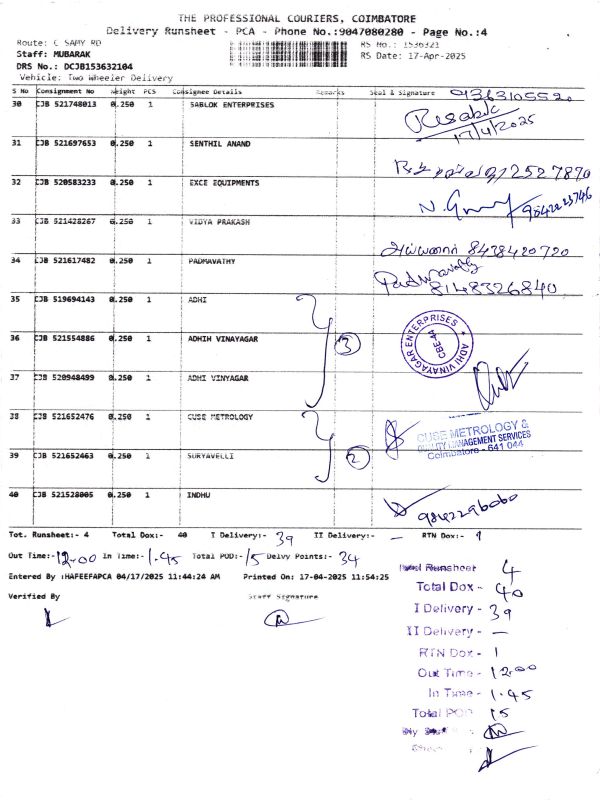 THE PROFESSIONAL COURIERS, COIMBATORE
Delivery Runsheet - PCA - Phone No.:9047080280 - Page No.:4
Route: C SAMY RD
RS No.: 1536321
Staff: MUBARAK
RS Date: 17-Apr-2025
DRS No.: DCJB153632104
Vehicle: Two Wheeler Delivery
S No Consignment No Weight PCS Consignee Details Remarks Seal & Signature 9363105520
30 CJB 521748013 0.250 1 SABLOK ENTERPRISES
17/4/2025
31 CJB 521697653 0.250 1 SENTHIL ANAND
32 CJB 520583233 0.250 1 EXCE EQUIPMENTS
9842223746
33 CJB 521428267 0.250 1 VIDYA PRAKASH
8438420720
34 CJB 521617482 0.250 1 PADMAVATHY
Padmavathy
8148326840
35 CJB 519694143 0.250 1 ADHI
36 CJB 521554886 0.250 1 ADHIH VINAYAGAR
3
ADHI VINAYAGAR ENTERPRISES
CBE-44
37 CJB 520948499 0.250 1 ADHI VINYAGAR
38 CJB 521652476 0.250 1 CUSE METROLOGY
CUSE METROLOGY &
QUALITY MANAGEMENT SERVICES
Coimbatore - 641 044
39 CJB 521652463 0.250 1 SURYAVELLI
2
40 CJB 521528005 0.250 1 INDHU
9842296060
Tot. Runsheet:- 4 Total Dox:- 40 I Delivery:- 39 II Delivery:- — RTN Dox:- 1
Out Time:- 12.00 In Time:- 1.45 Total POD:- 15 Delvy Points:- 34
Entered By :HAFEEFAPCA 04/17/2025 11:44:24 AM Printed On: 17-04-2025 11:54:25
Verified By Staff Signature
Runsheet 4
Total Dox - 40
I Delivery - 39
II Delivery - —
RTN Dox - 1
Out Time - 12.00
In Time - 1.45
Total POD 15